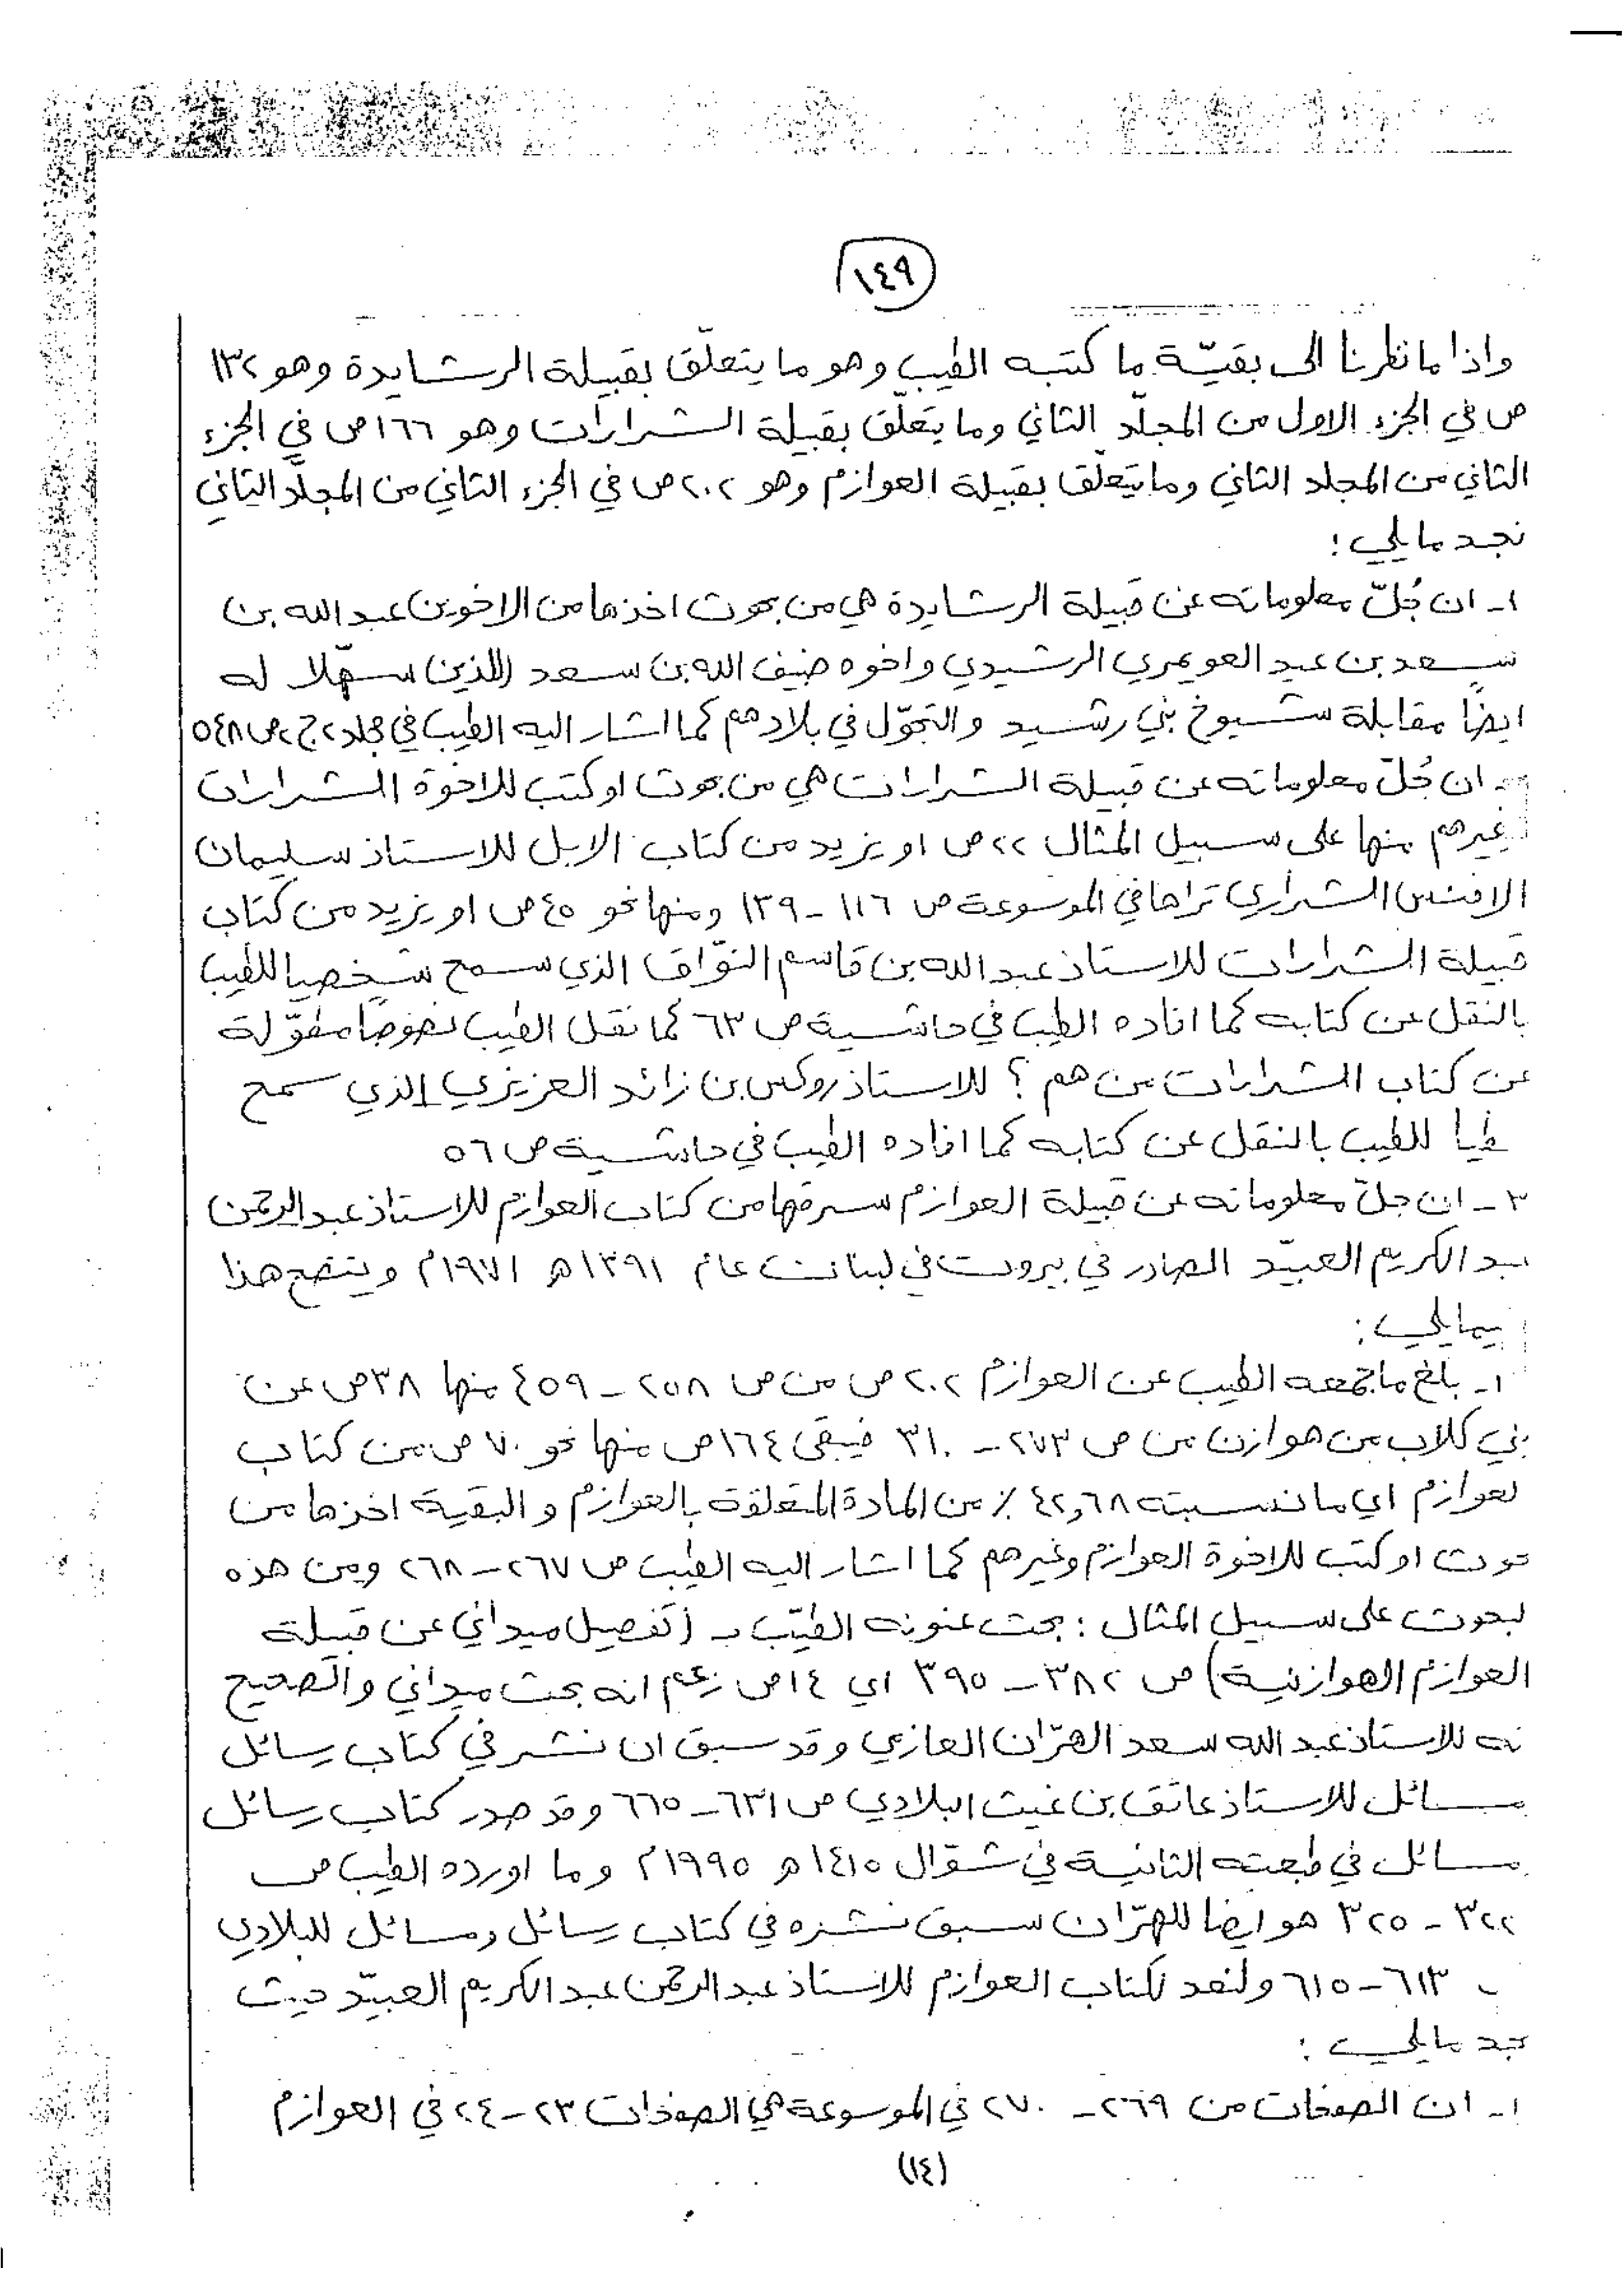 ١٤٩
واذا ما نظرنا الى بقيّة ما كتبه الطيب وهو ما يتعلّق بقبيلة الرشايدة وهو ١٣٢
ص في الجزء الاول من المجلّد الثاني وما يتعلّق بقبيلة الشرارات وهو ١٦٦ ص في الجزء
الثاني من المجلد الثاني وما يتعلّق بقبيلة العوازم وهو ٢٠٢ ص في الجزء الثاني من المجلّد الثاني
نجد ما يلي :
١ـ ان جُلّ معلوماته عن قبيلة الرشايدة هي من بحوث اخذها من الاخوين عبد الله بن
سعد بن عيد العويمري الرشيدي واخوه ضيف الله بن سعد (اللذين سهّلا له
ايضاً مقابلة شيوخ بني رشيد والتجوّل في بلادهم كما اشار اليه الطيب في مجلد ٢ ج ٢ ص ٥٤٨
ـ ان جُلّ معلوماته عن قبيلة الشرارات هي من بحوث او كتب للاخوة الشرارات
غيرهم منها على سبيل المثال ٢٢ ص او يزيد من كتاب الابل للاستاذ سليمان
الافنس الشراري تراها في الموسوعة ص ١١٦ - ١٣٩ ومنها نحو ٤٥ ص او يزيد من كتاب
قبيلة الشرارات للاستاذ عبد الله بن قاسم النوّاق الذي سمح شخصيا للطيب
بالنقل عن كتابه كما افاده الطيب في حاشية ص ٦٣ كما نقل الطيب نصوصاً مطوّلة
عن كتاب الشرارات من هم ؟ للاستاذ روكس بن زائد العزيزي الذي سمح
طيا للطيب بالنقل عن كتابه كما افاده الطيب في حاشية ص ٥٦
٣ ـ ان جلّ معلوماته عن قبيلة العوازم سرقها من كتاب العوازم للاستاذ عبد الرحمن
بد الكريم العبيّد الصادر في بيروت في لبنان عام ١٣٩١ هـ ١٩٧١ م ويتضح هذا
يما يلي :
١ـ بلغ ما جمعه الطيب عن العوازم ٢٠٢ ص من ص ٢٥٨ - ٤٥٩ منها ٣٨ ص عن
بني كلاب من هوازن من ص ٢٧٣ - ٣١٠ فيبقى ١٦٤ ص منها نحو ٧٠ ص من كتاب
لعوازم اي ما نسبته ٤٢,٦٨ ٪ من المادة المتعلقة بالعوازم والبقية اخذها من
حوث او كتب للاخوة العوازم وغيرهم كما اشار اليه الطيب ص ٢٦٧ - ٢٦٨ ومن هذه
لبحوث على سبيل المثال : بحث عنونه الطيّب بـ (تفصيل ميداني عن قبيلة
العوازم الهوازنية) ص ٣٨٢ - ٣٩٥ اي ١٤ ص زعم انه بحث ميداني والصحيح
نه للاستاذ عبد الله سعد الهرّان العازمي وقد سبق ان نشر في كتاب رسائل
مسائل للاستاذ عاتق بن غيث البلادي ص ٦٣١ - ٦٦٥ وقد صدر كتاب رسائل
مسائل في طبعته الثانية في شوّال ١٤١٥ هـ ١٩٩٥ م وما اورده الطيب ص
٣٢٢ - ٣٢٥ هو ايضا للهرّان سبق نشره في كتاب رسائل ومسائل للبلادي
٦١٣ - ٦١٥ ولنعد لكتاب العوازم للاستاذ عبد الرحمن عبد الكريم العبيّد حيث
جد ما يلي :
١ـ ان الصفحات من ٢٦٩ - ٢٧٠ في الموسوعة هي الصفحات ٢٣ - ٢٤ في العوازم
(١٤)